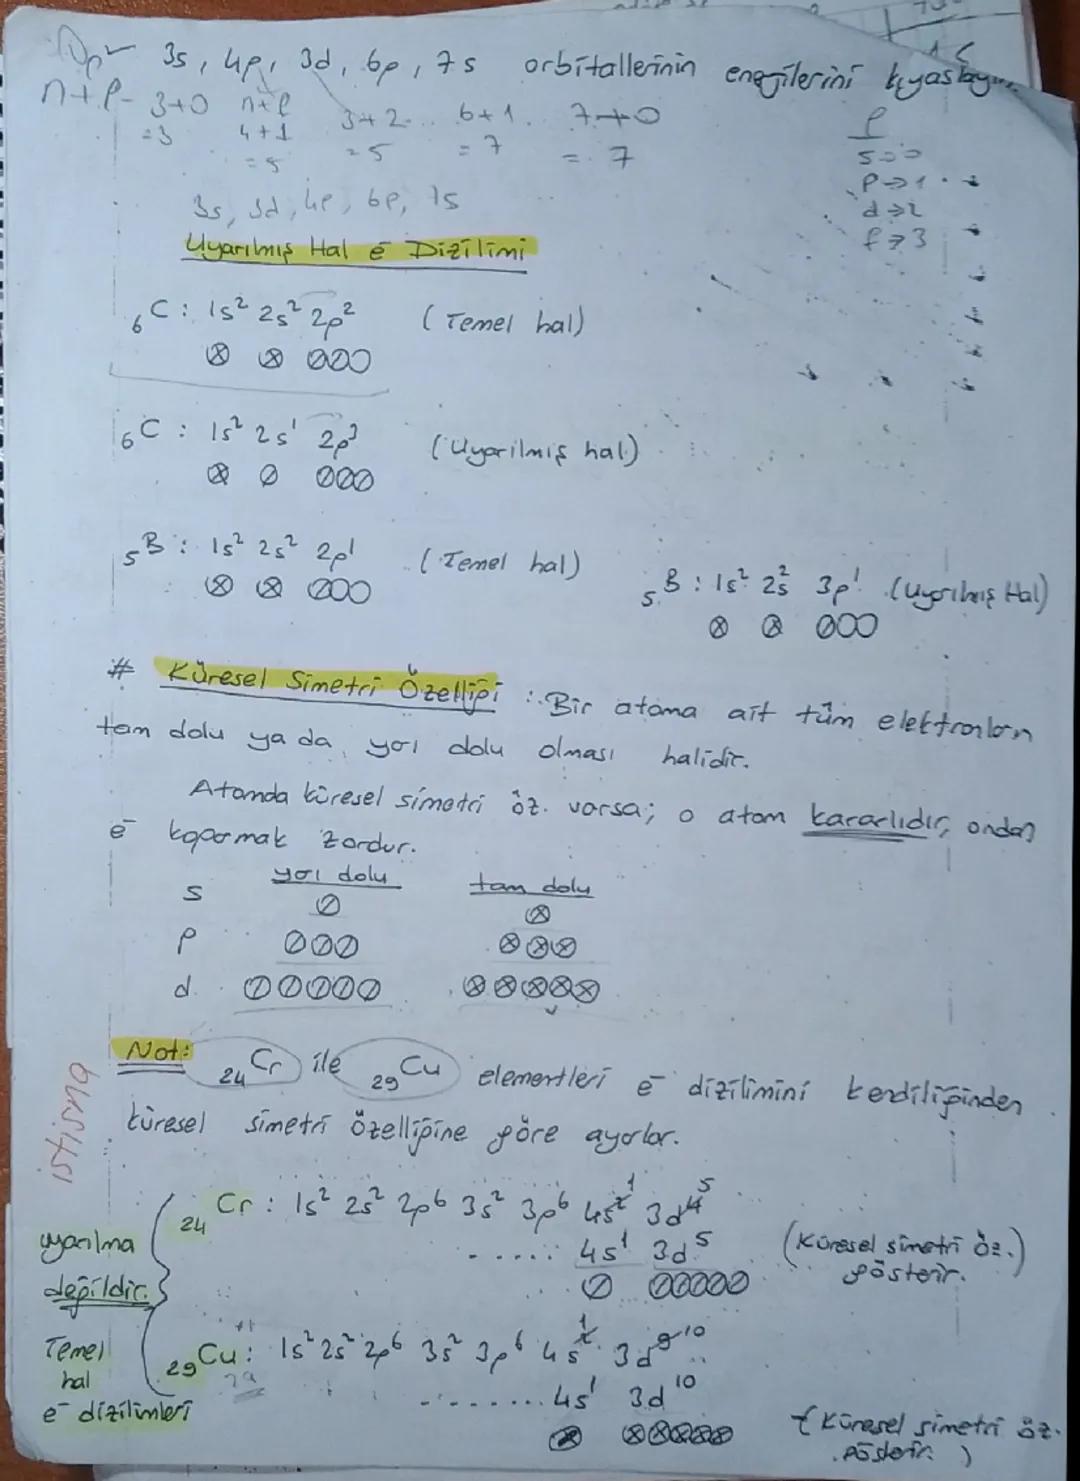 3s, 4p, 3d, 6p, 7s orbitallerinin enerjilerini
n+l 3+0 n+l 3+2 6+1 7+0
=3 4+1 =5 =7 = 7
=5
l
s→0
p→1
d→2
f→3
3s, 3d, 4p, 6p, 7s
Uyarılmış Hal e⁻ Dizilimi
₆C : 1s² 2s² 2p² (Temel hal)
₆C : 1s² 2s¹ 2p³ (Uyarılmış hal)
₅B : 1s² 2s² 2p¹ (Temel hal)
₅B : 1s² 2s² 3p¹ (Uyarılmış Hal)
# Küresel Simetri Özelliği : Bir atoma ait tüm elektronların
tam dolu ya da yarı dolu olması halidir.
Atomda küresel simetri öz. varsa; o atom kararlıdır, ondan
e⁻ koparmak zordur.
yarı dolu tam dolu
s
p
d
Not: ₂₄Cr ile ₂₉Cu elementleri e⁻ dizilimini kendiliğinden
küresel simetri özelliğine göre ayarlar.
istisna
₂₄Cr : 1s² 2s² 2p⁶ 3s² 3p⁶ 4s¹ 3d⁵
...... 4s¹ 3d⁵ (Küresel simetri öz.)
gösterir.
uyarılma
değildir.
Temel
hal
e⁻ dizilimleri
₂₉Cu : 1s² 2s² 2p⁶ 3s² 3p⁶ 4s¹ 3d¹⁰
........ 4s¹ 3d¹⁰
(Küresel simetri öz.
gösterir. )